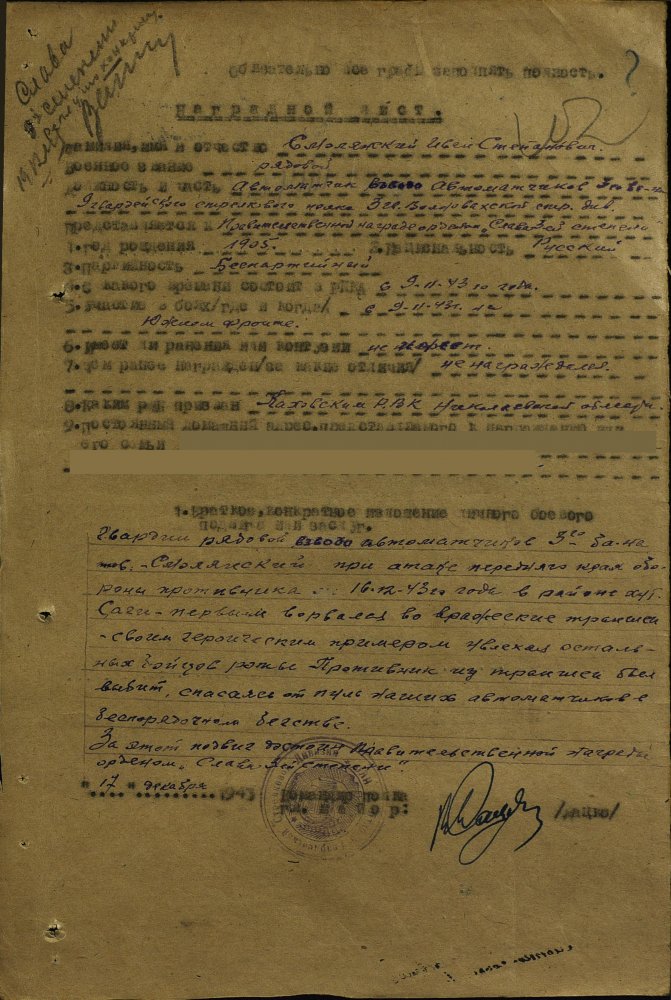 Слава
3й степени
Обязательно все графы заполнять полность.
НАГРАДНОЙ ЛИСТ.
Фамилия, имя и отчество Смоляжский Иван Степанович.
Военное звание рядовой
Должность и часть Автоматчик взвода автоматчиков 3го б-на
9 гвардейского стрелкового полка 3 гв. Волновахской стр. див.
Представляется к Правительственной награде орденом „Слава 3й степени
1. Год рождения 1905г. 2. Национальность Русский
3. Партийность Беспартийный
4. С какого времени состоит в РККА с 9-11-43го года.
5. Участие в боях/где и когда/ с 9-11-43г. на
Южном фронте.
6. Имеет ли ранения или контузии не имеет.
7. Чем ранее награжден/за какие отличия/ не награждался.
8. Каким РВК призван Каховским РВК Николаевской области
9. Постоянный домашний адрес, представляемого к награждению или
его семьи
1. Краткое, конкретное изложение личного боевого
подвига или заслуг.
Гвардии рядовой взвода автоматчиков 3го ба-на
тов. Смоляжский при атаке переднего края обо-
роны противника 16-12-43го года в районе хут.
Саги - первым ворвался во вражеские траншеи
- своим героическим примером увлекал осталь-
ных бойцов роты. Противник из траншеи был
выбит, спасаясь от пуль наших автоматчиков в
беспорядочном бегстве.
За этот подвиг достоин Правительственной награды
орденом „Слава 3й степени".
"17" декабря 1943 Командир полка
гв. майор: /Зацко/